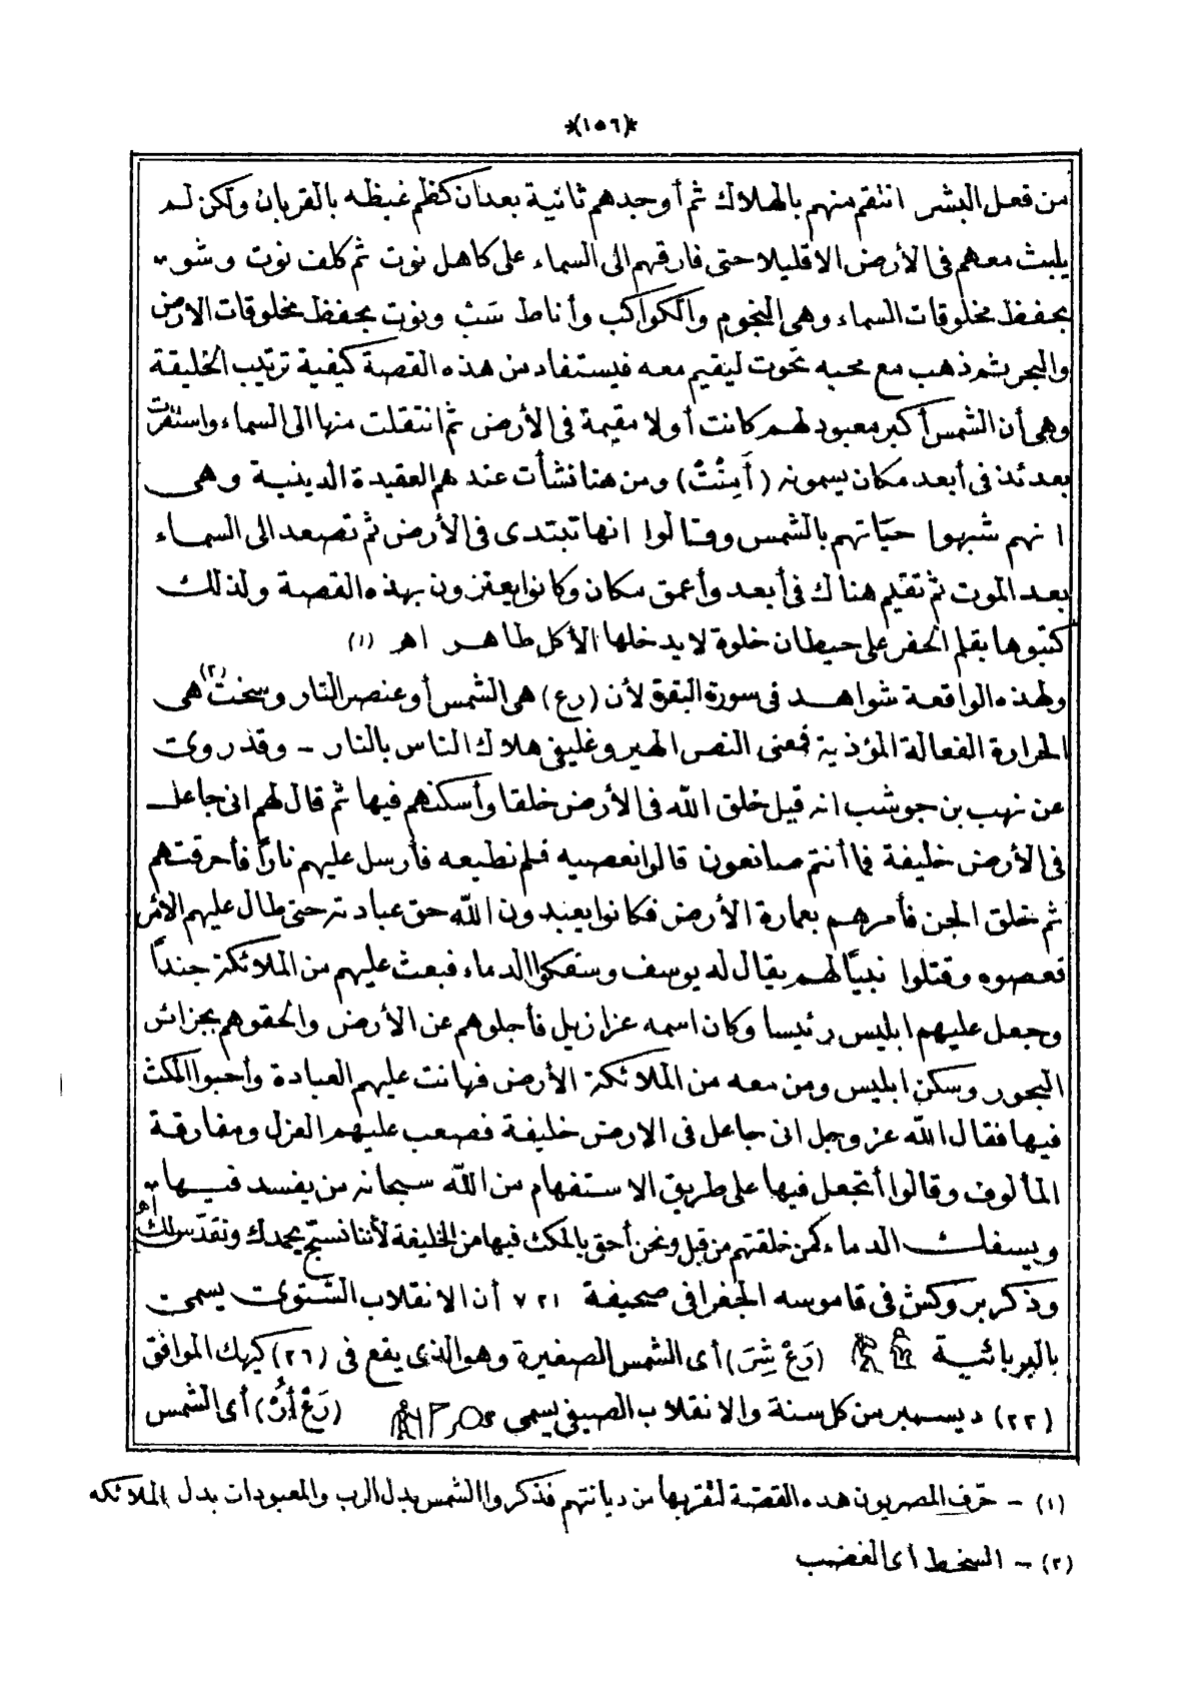 *(١٥٦)*
من فعل البشر انتقم منهم بالهلاك ثم أوجدهم ثانية بعد ان كظم غيظه بالقربان ولكن لم
يلبث معهم فى الأرض الا قليلا حتى فارقهم الى السماء على كاهل نوت ثم كلف نوت وشو
بحفظ مخلوقات السماء وهى النجوم والكواكب وأناط سَبْ ونوت بحفظ مخلوقات الارض
والبحر ثم ذهب مع محبه تحوت ليقيم معه فيستفاد من هذه القصة كيفية ترتيب الخليقة
وهى أن الشمس أكبر معبود لهم كانت أولا مقيمة فى الأرض ثم انتقلت منها الى السماء واستقرت
بعدئذ فى أبعد مكان يسمونه (أَمِنْتْ) ومن هنا نشأت عندهم العقيدة الدينية وهى
انهم شبهوا حياتهم بالشمس وقالوا انها تبتدى فى الأرض ثم تصعد الى السماء
بعد الموت ثم تقيم هناك فى أبعد وأعمق مكان وكانوا يعتزون بهذه القصة ولذلك
كتبوها بقلم الحفر على حيطان خلوة لا يدخلها الا كل طاهر اهـ (١)
ولهذه الواقعة شواهد فى سورة البقرة لأن (رع) هى الشمس أو عنصر النار وسخت (٢) هى
الحرارة الفعالة المؤذية فمعنى النص الهيروغليفى هلاك الناس بالنار - وقد روى
عن نهب بن حوشب انه قيل خلق الله فى الأرض خلقا وأسكنهم فيها ثم قال لهم انى جاعل
فى الأرض خليفة فما أنتم صانعون قالوا نعصيه فلم نطيعه فأرسل عليهم نارًا فأحرقتهم
ثم خلق الجن فأمرهم بعمارة الأرض فكانوا يعبدون الله حق عبادته حتى طال عليهم الأمر
فعصوه وقتلوا نبيًا لهم يقال له يوسف وسفكوا الدماء فبعث عليهم من الملائكة جندًا
وجعل عليهم ابليس رئيسا وكان اسمه عزازيل فأجلوهم عن الأرض والحقوهم بجزائر
البحور وسكن ابليس ومن معه من الملائكة الأرض فهانت عليهم العبادة وأحبوا المكث
فيها فقال الله عز وجل انى جاعل فى الارض خليفة فصعب عليهم العزل ومفارقة
المألوف وقالوا أتجعل فيها على طريق الاستفهام من الله سبحانه من يفسد فيها
ويسفك الدماء كمن خلقتهم من قبل ونحن أحق بالمكث فيها من الخليفة لأننا نسبح بحمدك ونقدّس لك اهـ
وذكر بروكش فى قاموسه الجغرافى صحيفة ٧٢١ أن الانقلاب الشتوى يسمى
بالبربائية (رَعْ شِرَ) أى الشمس الصغيرة وهو الذى يقع فى (٢٦) كيهك الموافق
(٢٢) ديسمبر من كل سنة والانقلاب الصيفى يسمى (رَعْ أُرْ) أى الشمس
(١) - حرّف المصريون هذه القصة لتقربها من ديانتهم فذكروا الشمس بدل الرب والمعبودات بدل الملائكه
(٢) - السخط أى الغضب